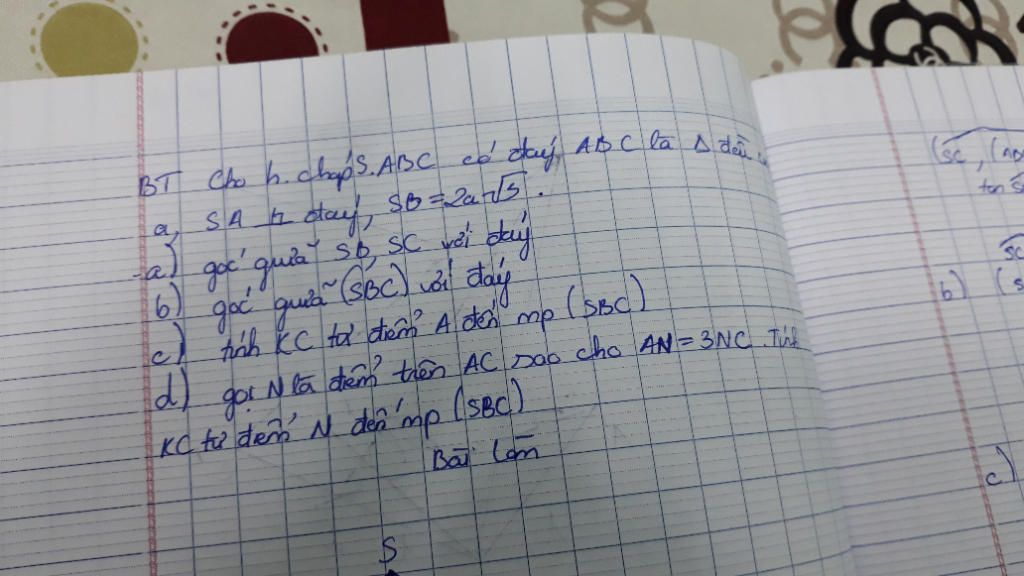 BT Cho h. chóp S.ABC có đáy ABC là Δ đều
a, SA ⊥ đáy, SB = 2a√5.
a) góc giữa SB, SC với đáy
b) góc giữa (SBC) với đáy
c) tính KC từ điểm A đến mp (SBC)
d) gọi N là điểm trên AC sao cho AN = 3NC. Tính
KC từ điểm N đến mp (SBC)
Bài làm
S
(SC, (
tan
SC
b) (S
c)